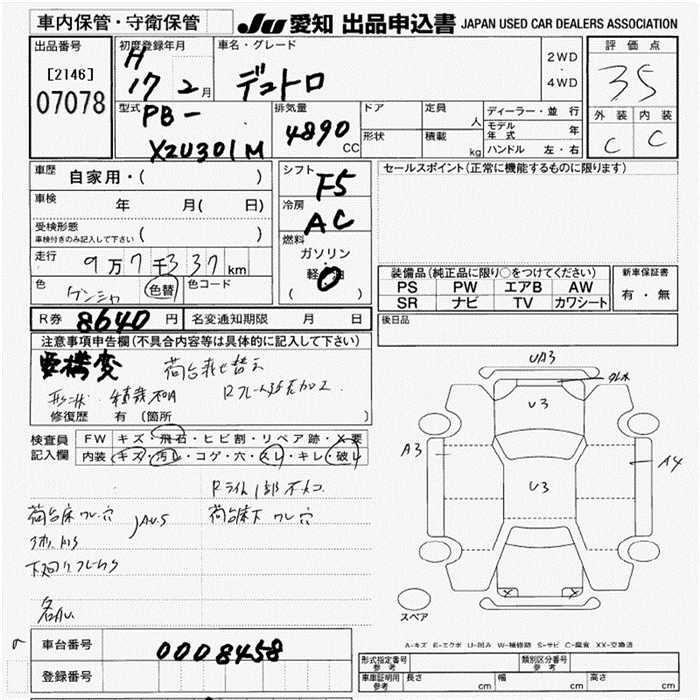 車内保管・守衛保管 JU 愛知 出品申込書 JAPAN USED CAR DEALERS ASSOCIATION
出品番号 初度登録年月 車名・グレード 評価点
[2146] H 17 2月 デュトロ 2WD ・ 4WD 35
07078
型式 PB- 排気量 4890 CC ドア 定員 人 ディーラー・並行 外装 内装
XZU301M 形状 積載 kg モデル年式 年 C C
ハンドル 左・右
車歴 自家用・( ) シフト F5 セールスポイント(正常に機能するものに限ります)
車検 年 月( 日) 冷房 AC
受検形態 ( )
車検付きのみ記入して下さい
燃料 ガソリン ・ 軽油 ( 0 )
走行 9万7千337km
色 色替 色コード
装備品(純正品に限り○をつけてください) 新車保証書
PS PW エアB AW 有・無
SR ナビ TV カワシート
R券 8640円 名変通知期限 月 日 後日品
注意事項申告欄(不具合内容等は具体的に記入して下さい)
要構変 荷台載せ替え
形状 積載不明
修復歴 有(箇所 )
検査員 FW キズ・飛石・ヒビ割・リペア跡・X要
記入欄 内装 キズ・汚レ・コゲ・穴・スレ・キレ・破レ
荷台床ワレ・穴 荷台床下 ワレ 穴
UA3
U3
A3 U3 A4
スペア
A-キズ E-エクボ U-凹み W-補修跡 S-サビ C-腐食 XX-交換済
車台番号 0008458
登録番号
形式指定番号 参考 類別区分番号 参考
車庫証明用 参考 長さ cm 幅 cm 高さ cm